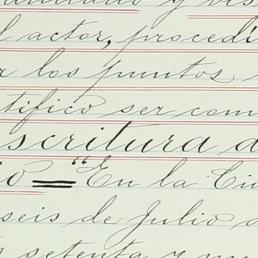 y
l actor, procedi
los puntos
tifico ser com
scritura d
io = "En la Ciu
seis de Julio
setenta y nu